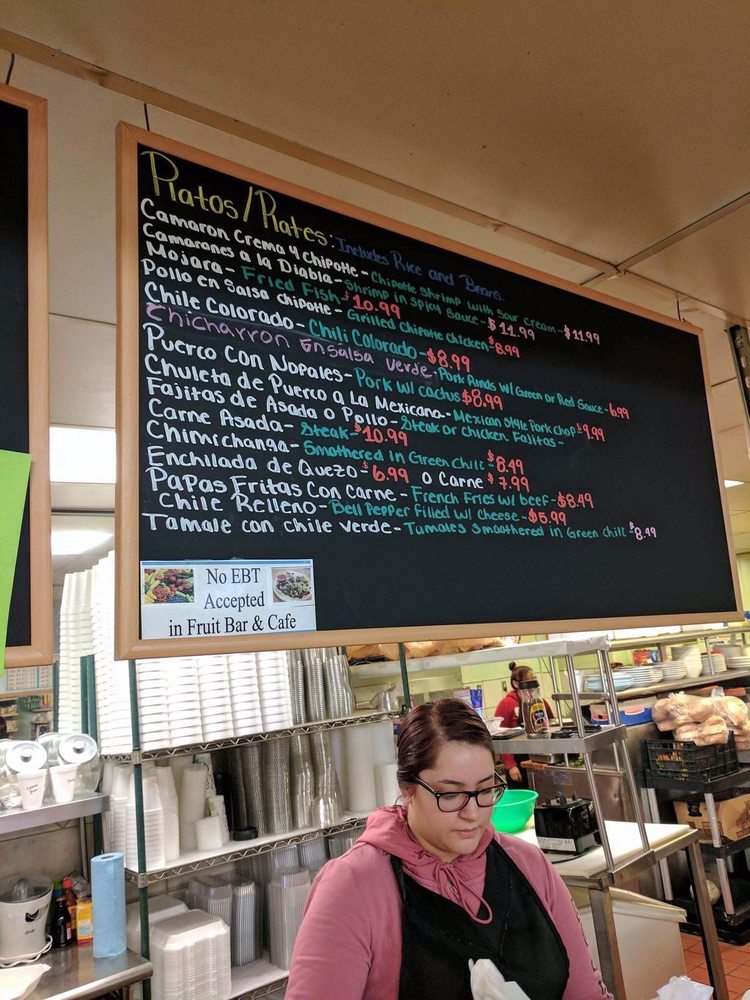 Platos/Plates: Includes Rice and Beans.
Camaron Crema y Chipotle - Chipotle Shrimp with Sour Cream - $11.99
Camarones a la Diabla - Shrimp in Spicy Sauce - $11.99
Mojara - Fried Fish $10.99
Pollo en Salsa Chipotle - Grilled Chipotle Chicken - $8.99
Chile Colorado - Chili Colorado - $8.99
Chicharron Ensalsa Verde - Pork Rinds w/ Green or Red Sauce - 6.99
Puerco Con Nopales - Pork w/ Cactus $8.99
Chuleta de Puerco a La Mexicana - Mexican Style Pork Chop $9.99
Fajitas de Asada o Pollo - Steak or Chicken Fajitas -
Carne Asada - Steak - $10.99
Chimichanga - Smothered in Green Chili $8.49
Enchilada de Quezo - $6.99 o Carne $7.99
Papas Fritas Con Carne - French Fries w/ beef - $8.49
Chile Relleno - Bell Pepper Filled w/ Cheese - $5.99
Tamale con Chile Verde - Tamales Smothered in Green Chili - $8.49
No EBT
Accepted
in Fruit Bar & Cafe